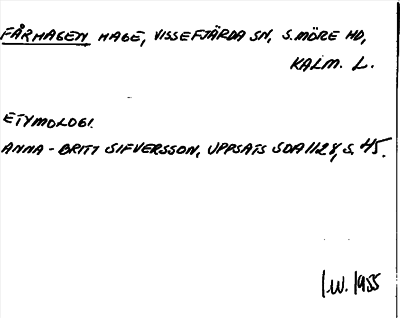 FÅRHAGEN HAGE, VISSEFJÄRDA SN, S.MÖRE HD,
KALM. L.
ETYMOLOGI.
ANNA-BRITT SIFVERSSON, UPPSATS SOA 1128, S. 45.
I.W. 1955